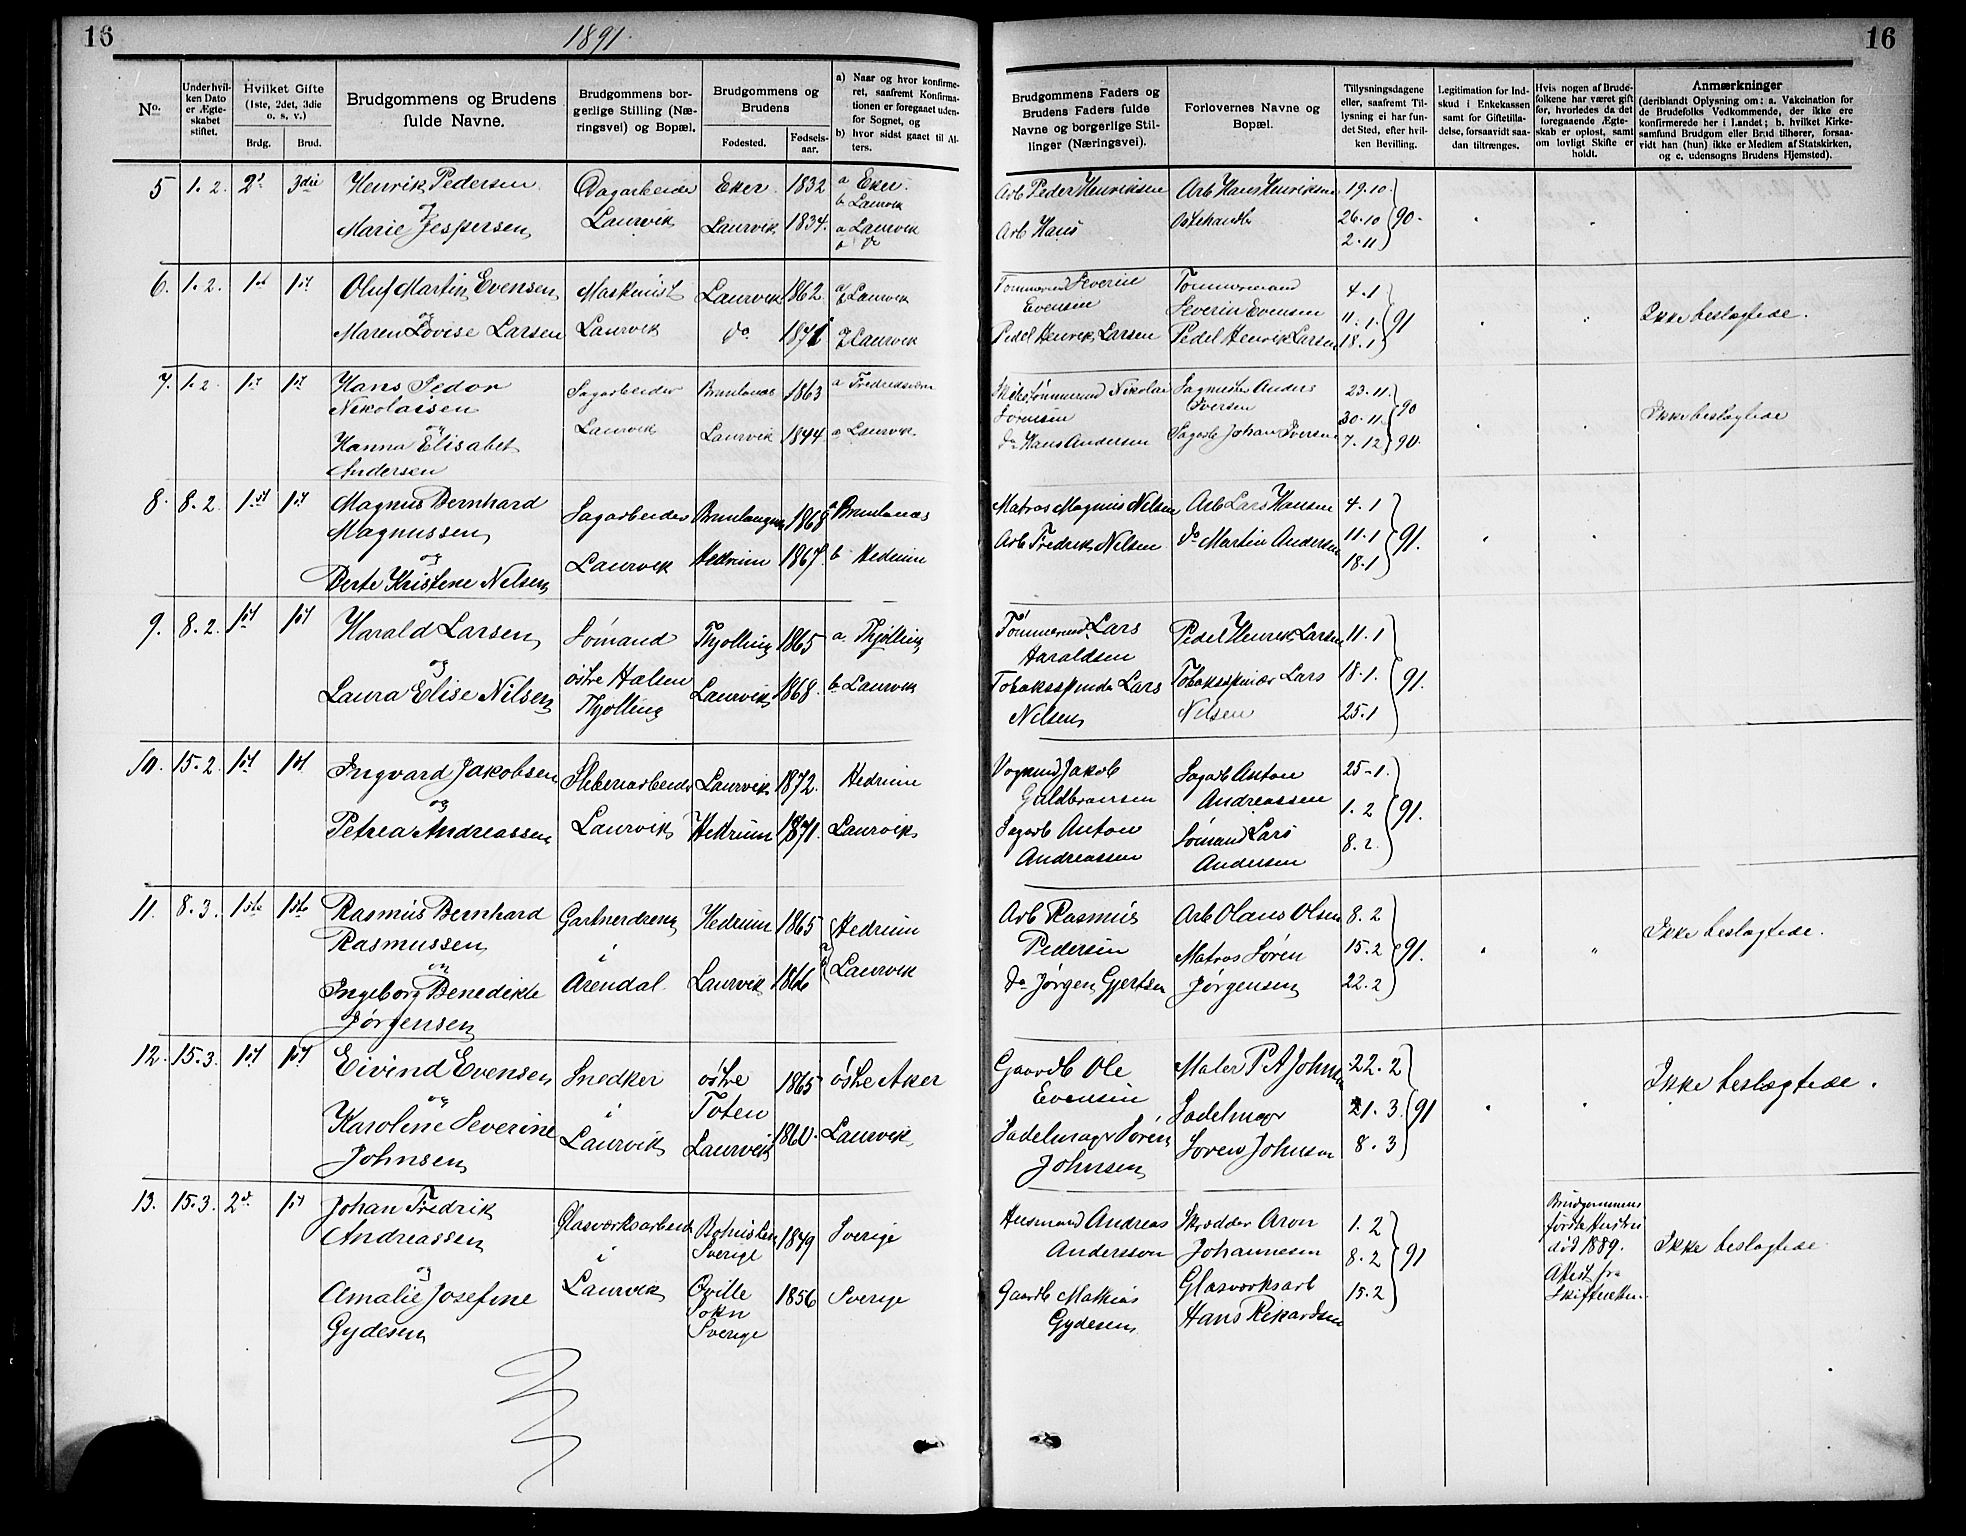 16
1891.
16
No.
Under hvilken Dato er Ægteskabet stiftet.
Hvilket Gifte (1ste, 2det, 3die o. s. v.)
Brdg.
Brud.
Brudgommens og Brudens fulde Navne.
Brudgommens borgerlige Stilling (Næringsvei) og Bopæl.
Brudgommens og Brudens
Fødested.
Fødselsaar.
a) Naar og hvor konfirmeret, saafremt Konfirmationen er foregaaet udenfor Sognet, og
b) hvor sidst gaaet til Alters.
Brudgommens Faders og Brudens Faders fulde Navne og borgerlige Stillinger (Næringsvei).
Forlovernes Navne og Bopæl.
Tillysningsdagene eller, saafremt Tillysning ei har fundet Sted, efter hvilken Bevilling.
Legitimation for Indskud i Enkekassen samt for Giftetilladelse, forsaavidt saadan tiltrænges.
Hvis nogen af Brudefolkene har været gift før, hvorledes da det foregaaende Ægteskab er opløst, samt om lovligt Skifte er holdt.
Anmærkninger
(deriblandt Oplysning om: a. Vakcination for de Brudefolks Vedkommende, der ikke ere konfirmerede her i Landet; b. hvilket Kirkesamfund Brudgom eller Brud tilhører, forsaavidt han (hun) ikke er Medlem af Statskirken, og c. udensogns Brudens Hjemsted).
5 1.2. 2d 3die Henrik Pedersen Dagarbeider Eker 1832 a Eker. b Laurvik
og
Marie Jespersen Laurvik Laurvik 1834. a Laurvik b do
Arb Peder Henriksen Arb Hans Henriksen 19.10
Arb Hans Ostehandler 26.10 90.
2.11
6. 1.2. 1st 1st Oluf Martin Evensen Maskinist Laurvik 1862 a/b Laurvik
og
Maren Lovise Larsen Laurvik do 1871 a/b Laurvik
Tømmermand Severin Evensen Tømmermand Severin Evensen 4.1
11.1. 91
Pedel Henrik Larsen Pedel Henrik Larsen 18.1
Ikke beslægtede.
7. 1.2 1st 1st Hans Pedor Nikolaisen Sagarbeider Brunlanæs 1863 a Fredriksværn
og
Hanna Elisabet Andersen Laurvik Laurvik 1844 a Laurvik
Skibstømmermand Nikolai Sørensen Sagmester Anders Iversen 23.11.
30.11. 90
do Hans Andersen Sagarb Johan Iversen 7.12 90.
Ikke beslægtede
8. 8.2. 1st 1st Magnus Bernhard Magnussen Sagarbeider Brunlanæs 1868 a Brunlanæs
og
Berte Kristene Nilsen Laurvik Hedrum 1867. b Hedrum
Matros Magnus Nilsen Arb Lars Hansen 4.1
Arb Fredrik Nilsen do Martin Andersen 11.1 91.
18.1
9. 8.2. 1st 1st Harald Larsen Sømand Thjølling 1865 a. Thjølling
og
Laura Elise Nilsen østre Halsen Thjølling Laurvik 1868. b Laurvik
Tømmermand Lars Haraldsen Pedel Henrik Larsen 11.1
Tobaksspinder Lars Nilsen Tobaksspinder Lars Nilsen 18.1. 91.
25.1
10. 15.2. 1st 1st Ingvard Jakobsen Sliberiarbeider Laurvik 1872. Hedrum
og
Petrea Andreassen Laurvik Hedrum 1871. Laurvik
Vognmd Jakob Guldbransen Sagarb Anton Andreassen 25-1.
1.2 91.
Sagarb Anton Andreassen Sømand Lars Andersen 8.2.
11. 8.3. 1ste 1ste Rasmus Bernhard Rasmussen Gartnerdreng Hedrum 1865 Hedrum
og i
Ingeborg Benedikte Jørgensen Arendal Laurvik 1866 Laurvik
Arb Rasmus Pedersen Arb Olaus Olsen 8.2
Matros Søren Jørgensen 15.2 91.
do Jørgen Gjertsen 22.2
Ikke beslægtede.
12. 15.3. 1st 1st Eivind Evensen Snedker østre Toten 1865 østre Aker
og i
Karoline Severine Johnsen Laurvik Laurvik 1860. Laurvik
Gaardb Ole Evensen Maler P A Johnsen 22.2
Sadelmager Søren Johnsen Sadelmagr Søren Johnsen 1.3. 91
8.3
Ikke beslægtede.
13. 15.3. 2d. 1st Johan Fredrik Andreassen Glasværksarbeider Bohuslen Sverige 1849 Sverige
og i
Amalie Josefine Gydesen Laurvik Qville Sokn Sverige 1856 Sverige
Husmand Andreas Andersson Skrædder Aron Johannesen 1.2
8.2 91
Gaardb Mathias Gydesen Glasværksarb Hans Rikardsen 15.2
Brudgommens første Hustru død 1889. Attest fra Skifteretten.
Ikke beslægtede.